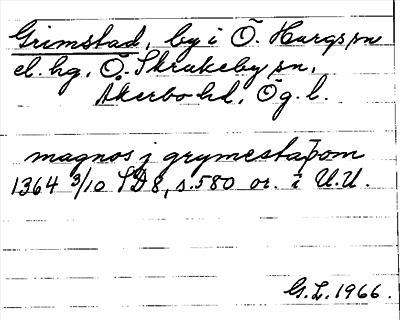 Grimstad, by i Ö. Hargs sn
el. hg, Ö. Skrukeby sn,
Åkerbo hd, Ög. l.
magnos j grymestaþom
1364 3/10 SD 8, s. 580 or. i U.U.
G.L. 1966.